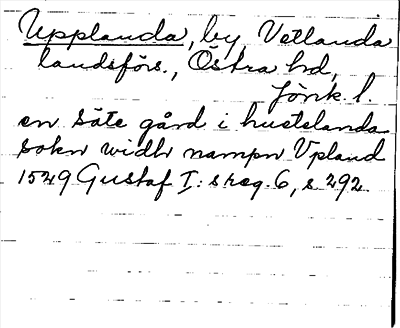 Upplanda, by Vetlanda
landsförs., Östra hd,
Jönk. l.
en säte gård i huetelanda
sokn widh nampn Vpland
1529 Gustaf I:s reg. 6, s. 292.